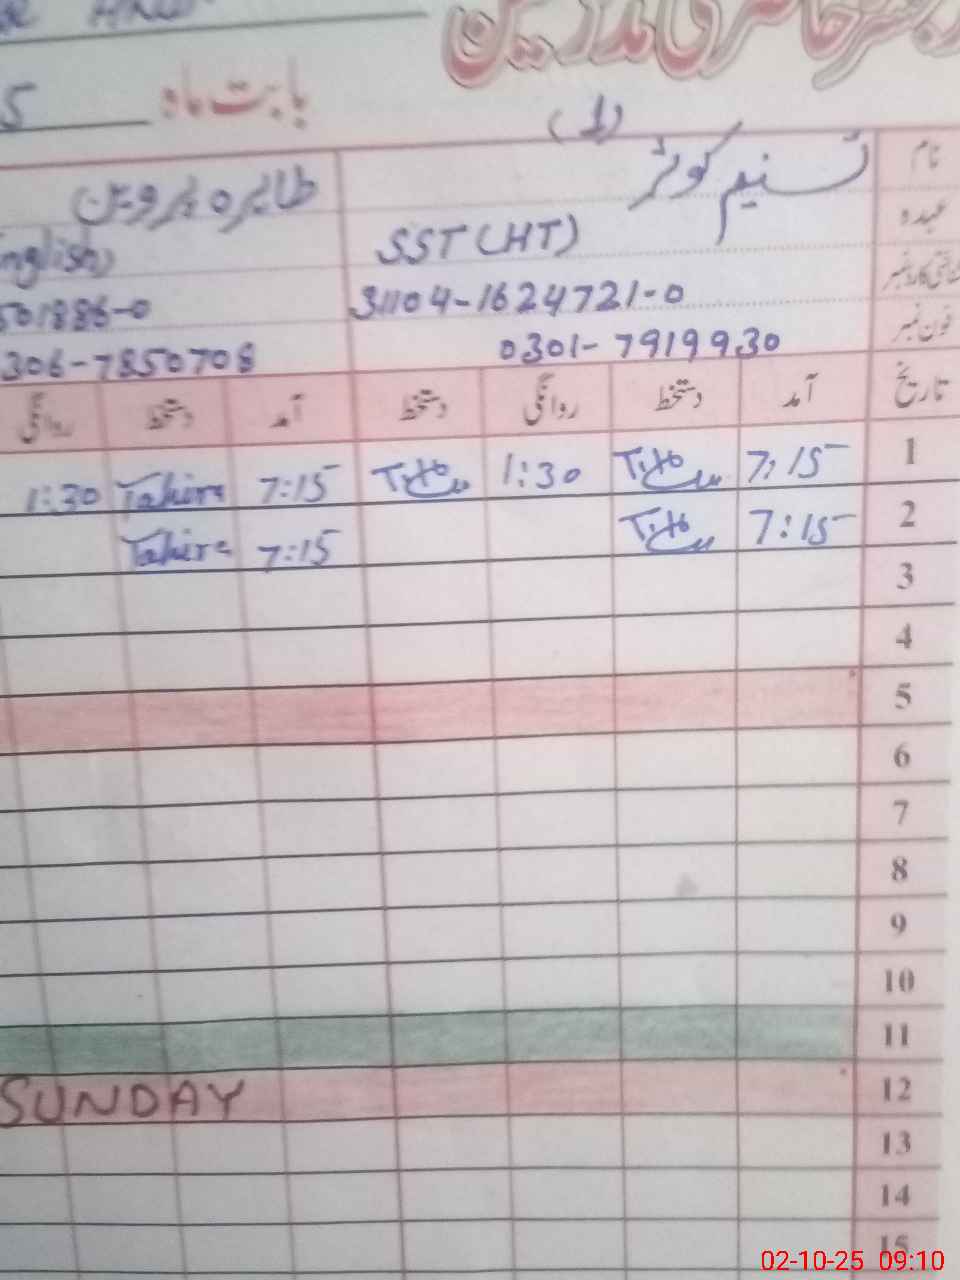 حاضری مدرسین
5 بابت ماہ
(1)
نام تسنیم کوثر طاہرہ پروین
عہدہ SST (HT) English)
شناختی کارڈ نمبر 31104-1624721-0 501886-0
فون نمبر 0301-7919930 306-7850708
تاریخ آمد دستخط روانگی دستخط آمد دستخط روانگی
1 7:15 1:30 7:15 Tahira 1:30
2 7:15 7:15 Tahira
3
4
5
6
7
8
9
10
11
12 SUNDAY
13
14
15
02-10-25 09:10